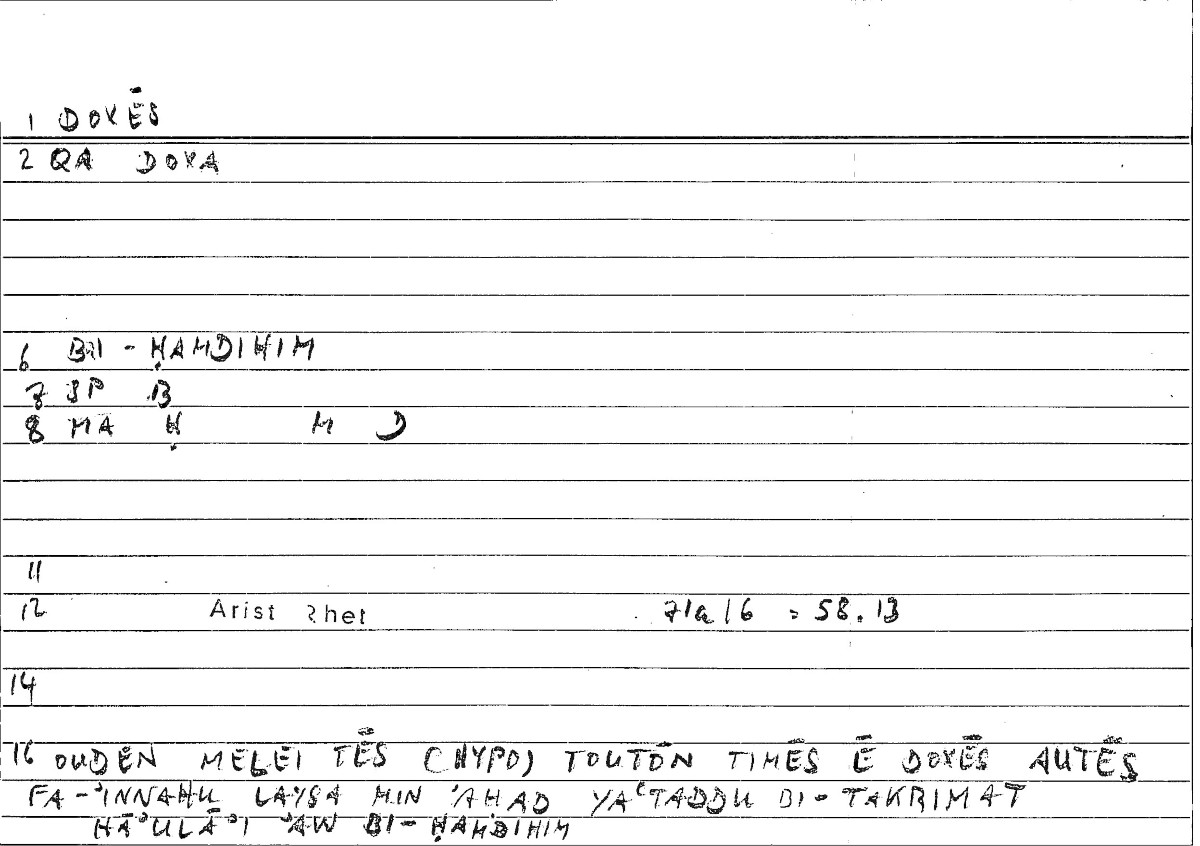 1 DOXĒS
2 QA DOXA
6 BI-ḤAMDIHIM
7 SP B
8 MA Ḥ M D
11
12 Arist Rhet 71a16 = 58.13
14
16 OUDEN MELEI TĒS (HYPO) TOUTŌN TIMĒS Ē DOXĒS AUTĒS
FA-ʾINNAHU LAYSA MIN ʾAHAD YAʿTADDU BI-TAKRIMAT
HĀʾULĀʾI ʾAW BI-ḤAMDIHIM